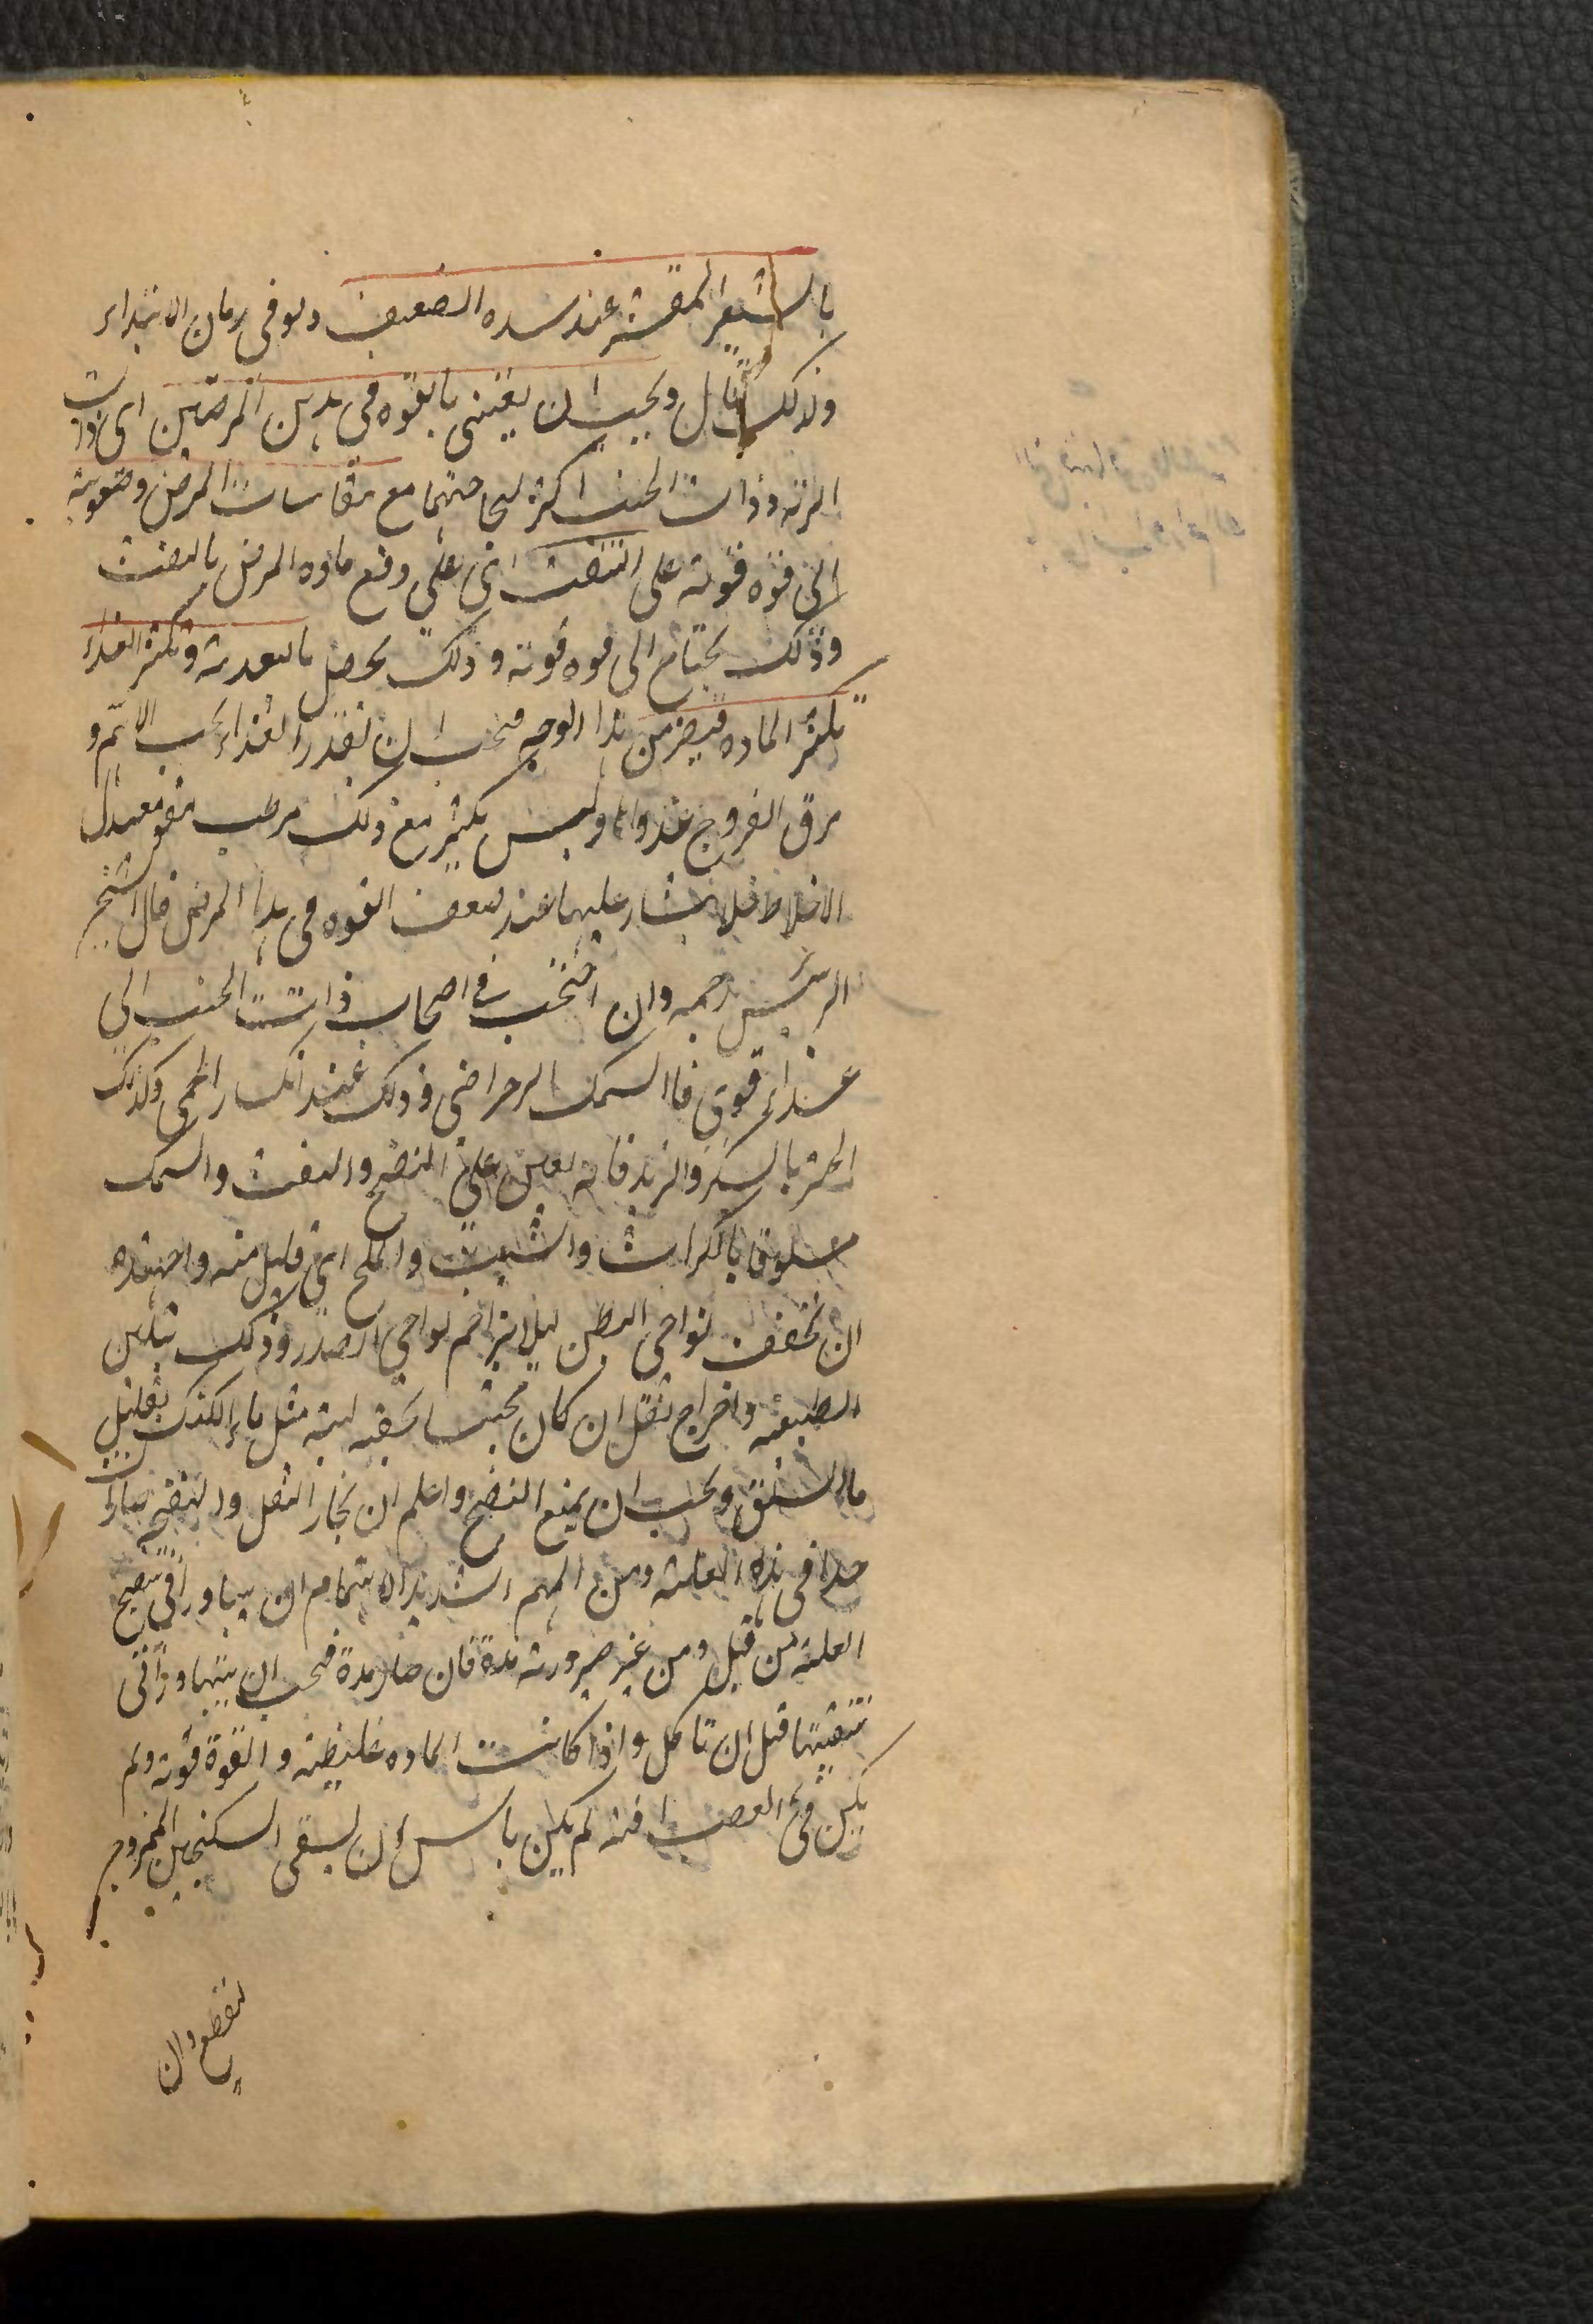 بالشعير المقشر عند شدة الضعف ولو في زمان الابتداء
ولذلك قال ويجب ان يعتنى بالقوة في هذين المرضين اى ذات
الرية وذات الجنب اكثر لحاجتهما مع مقاسات المرض وصعوبته
الى قوة قوية على النفث اى على دفع مادة المرض بالنفث
وذلك يحتاج الى قوة قوية وذلك يحصل بالتغذية وتكثير الغذاء
يكثر المادة فيضر من هذا الوجه فيجب ان يقدر الغذاء بحسب الاهم و
مرق الفروج غذاء وليس بكثير مع ذلك مرطب مقو معدل
الاخلاط فلا يشار عليها عند ضعف القوة في هذا المرض قال الشيخ
الرئيس رحمه وان احتجت في اصحاب ذات الجنب الى
غذاء قوى فالسمك الرضراضى وذلك عند انكسار الحمى وكذلك
الخبز بالسكر والزبد فانه يعين على النضج والنفث والسمك
مسلوقا بالكراث والشبت والملح اى قليل منه واجتهد
ان تخفف نواحى البطن ليلا يزاحم نواحى الصدر وذلك بتليين
الطبيعة واخراج ثقل ان كان محتبسا بحقنة لينة مثل ماء الكشك بقليل
ماء السلق ويجب ان يمنع النفخ واعلم ان بخار الثفل والنفخ ضار
جدا في هذه العلة ومن المهم الشديد الاهتمام ان يبادر في نضج
العلة من قبل ومن غير صيرورته مدة فان صار مدة فيجب ان يبادر في
تنقيتها قبل ان تاكل واذا كانت المادة غليظة والقوة قوية ولم
يكن في العصب افة لم يكن باس ان يسقى السكنجبين الممزوج
لتقطيع وان